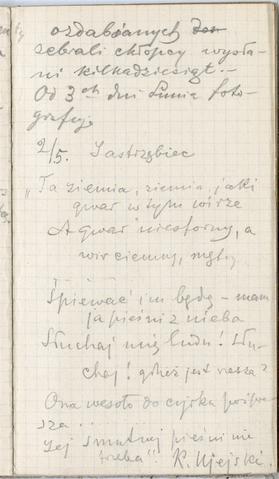 ozdabianych
zebrali chłopcy wysła-
ni kilkadziesiąt.-
Od 3ch dni Lunia foto-
grafuje
2/5. Jastrzębiec
„Ta ziemia, ziemia, jaki
gwar w tym wirze
A gwar niesforny, a
wir ciemny, mętny
Śpiewać im będę - mam
ja pieśni z nieba
Słuchaj mój ludu! Słu-
chaj! gdzież jest rzesza?
Ona wesoło do cyrku pośpie-
sza..
Jej smutnej pieśni nie
trzeba". K. Ujejski.